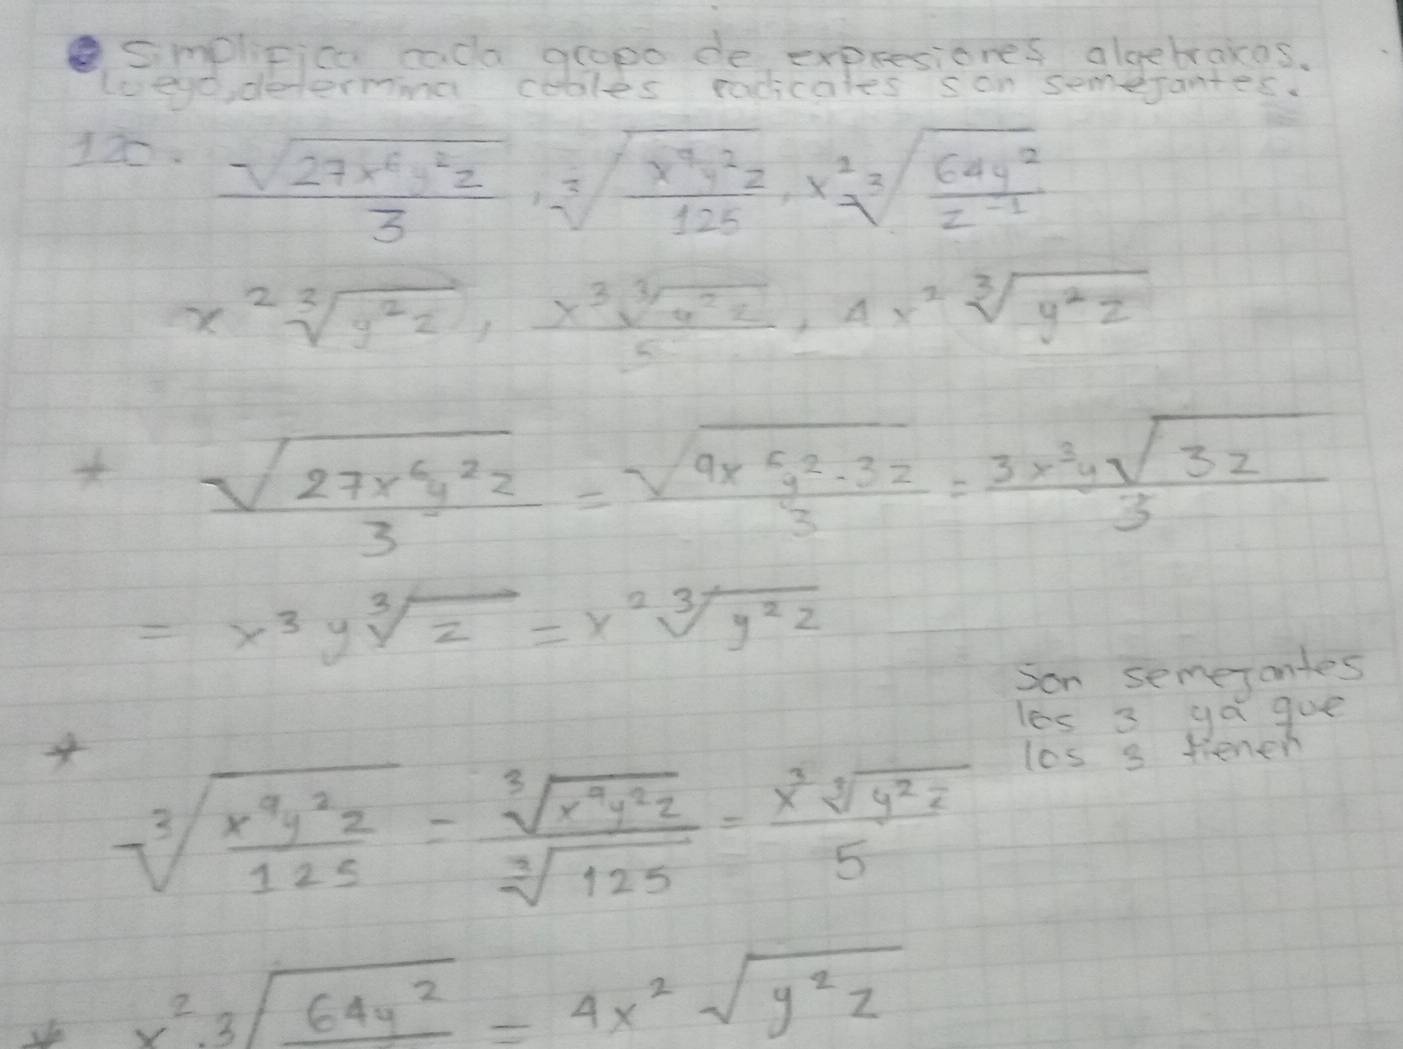 Simplifica cada grupo de expresiones algebraicas.
luego, determina cuáles radicales son semejantes.
120. √(27x⁶y²z)/3 , ³√(x⁹y²z/125) , x² ³√(64y²/z⁻¹)
x² ³√(y²z) , x³ ³√(y²z)/5 , 4x² ³√(y²z)
* √(27x⁶y²z)/3 = √(9x⁶y²·3z)/3 = 3x³y√(3z)/3
= x³y ³√z = x² ³√(y²z)
Son semejantes
los 3 ya que
los 3 tienen
* ³√(x⁹y²z/125) = ³√(x⁹y²z)/³√125 = x³ ³√(y²z)/5
* x² · ³√(64y² = 4x² √(y²z)